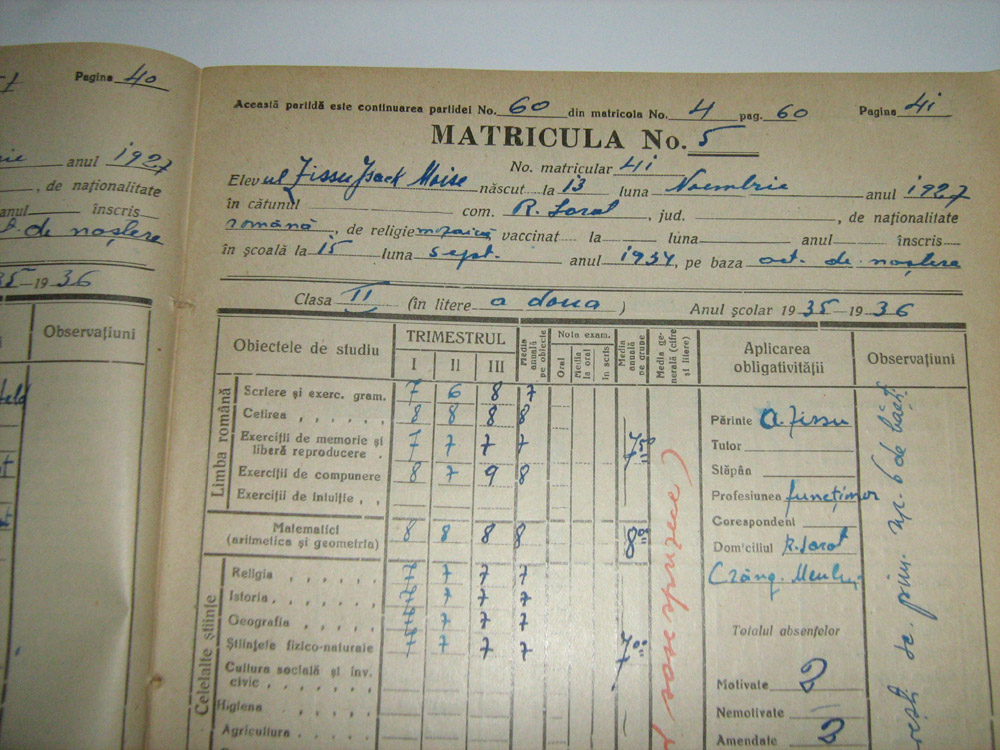 Pagina 40
anul 1927
, de naționalitate
anul înscris
de naștere
35-1936
Observațiuni
Această partidă este continuarea partidei No. 60 din matricola No. 4 pag. 60 Pagina 41
MATRICULA No. 5
No. matricular 41
Elevul Zissu Isack Moise născut la 13 luna Noembrie anul 1927
în cătunul com. R. Sarat, jud. , de naționalitate
română, de religie mozaică vaccinat la luna anul înscris
în școală la 15 luna sept. anul 1934, pe baza act. de naștere
Clasa II (în litere a doua) Anul școlar 1935-1936
Obiectele de studiu TRIMESTRUL I II III Media anuală pe obiecte Nota exam. Oral Media la oral În scris Media anuală pe grupe Media generală (cifre și litere) Aplicarea obligativității Observațiuni
Limba română
Scriere și exerc. gram. 7 6 8 7
Cetirea 8 8 8 8
Exerciții de memorie și liberă reproducere 7 7 7 7 7,50
Exerciții de compunere 8 7 9 8
Exerciții de intuiție
Matematici (aritmetica și geometria) 8 8 8 8 8,00
Celelalte științe
Religia 7 7 7 7
Istoria 7 7 7
Geografia 7 7 7
Științele fizico-naturale 7 7 7 7 7,00
Cultura socială și inv. civic
Higiena
Agricultura
Părinte A. Zissu
Tutor
Stăpân
Profesiunea funcționar
Corespondent
Domiciliul R. Sarat
Crâng.
Totalul absențelor
Motivate 2
Nemotivate
Amendate 2
de prim. No. 6 de băeți